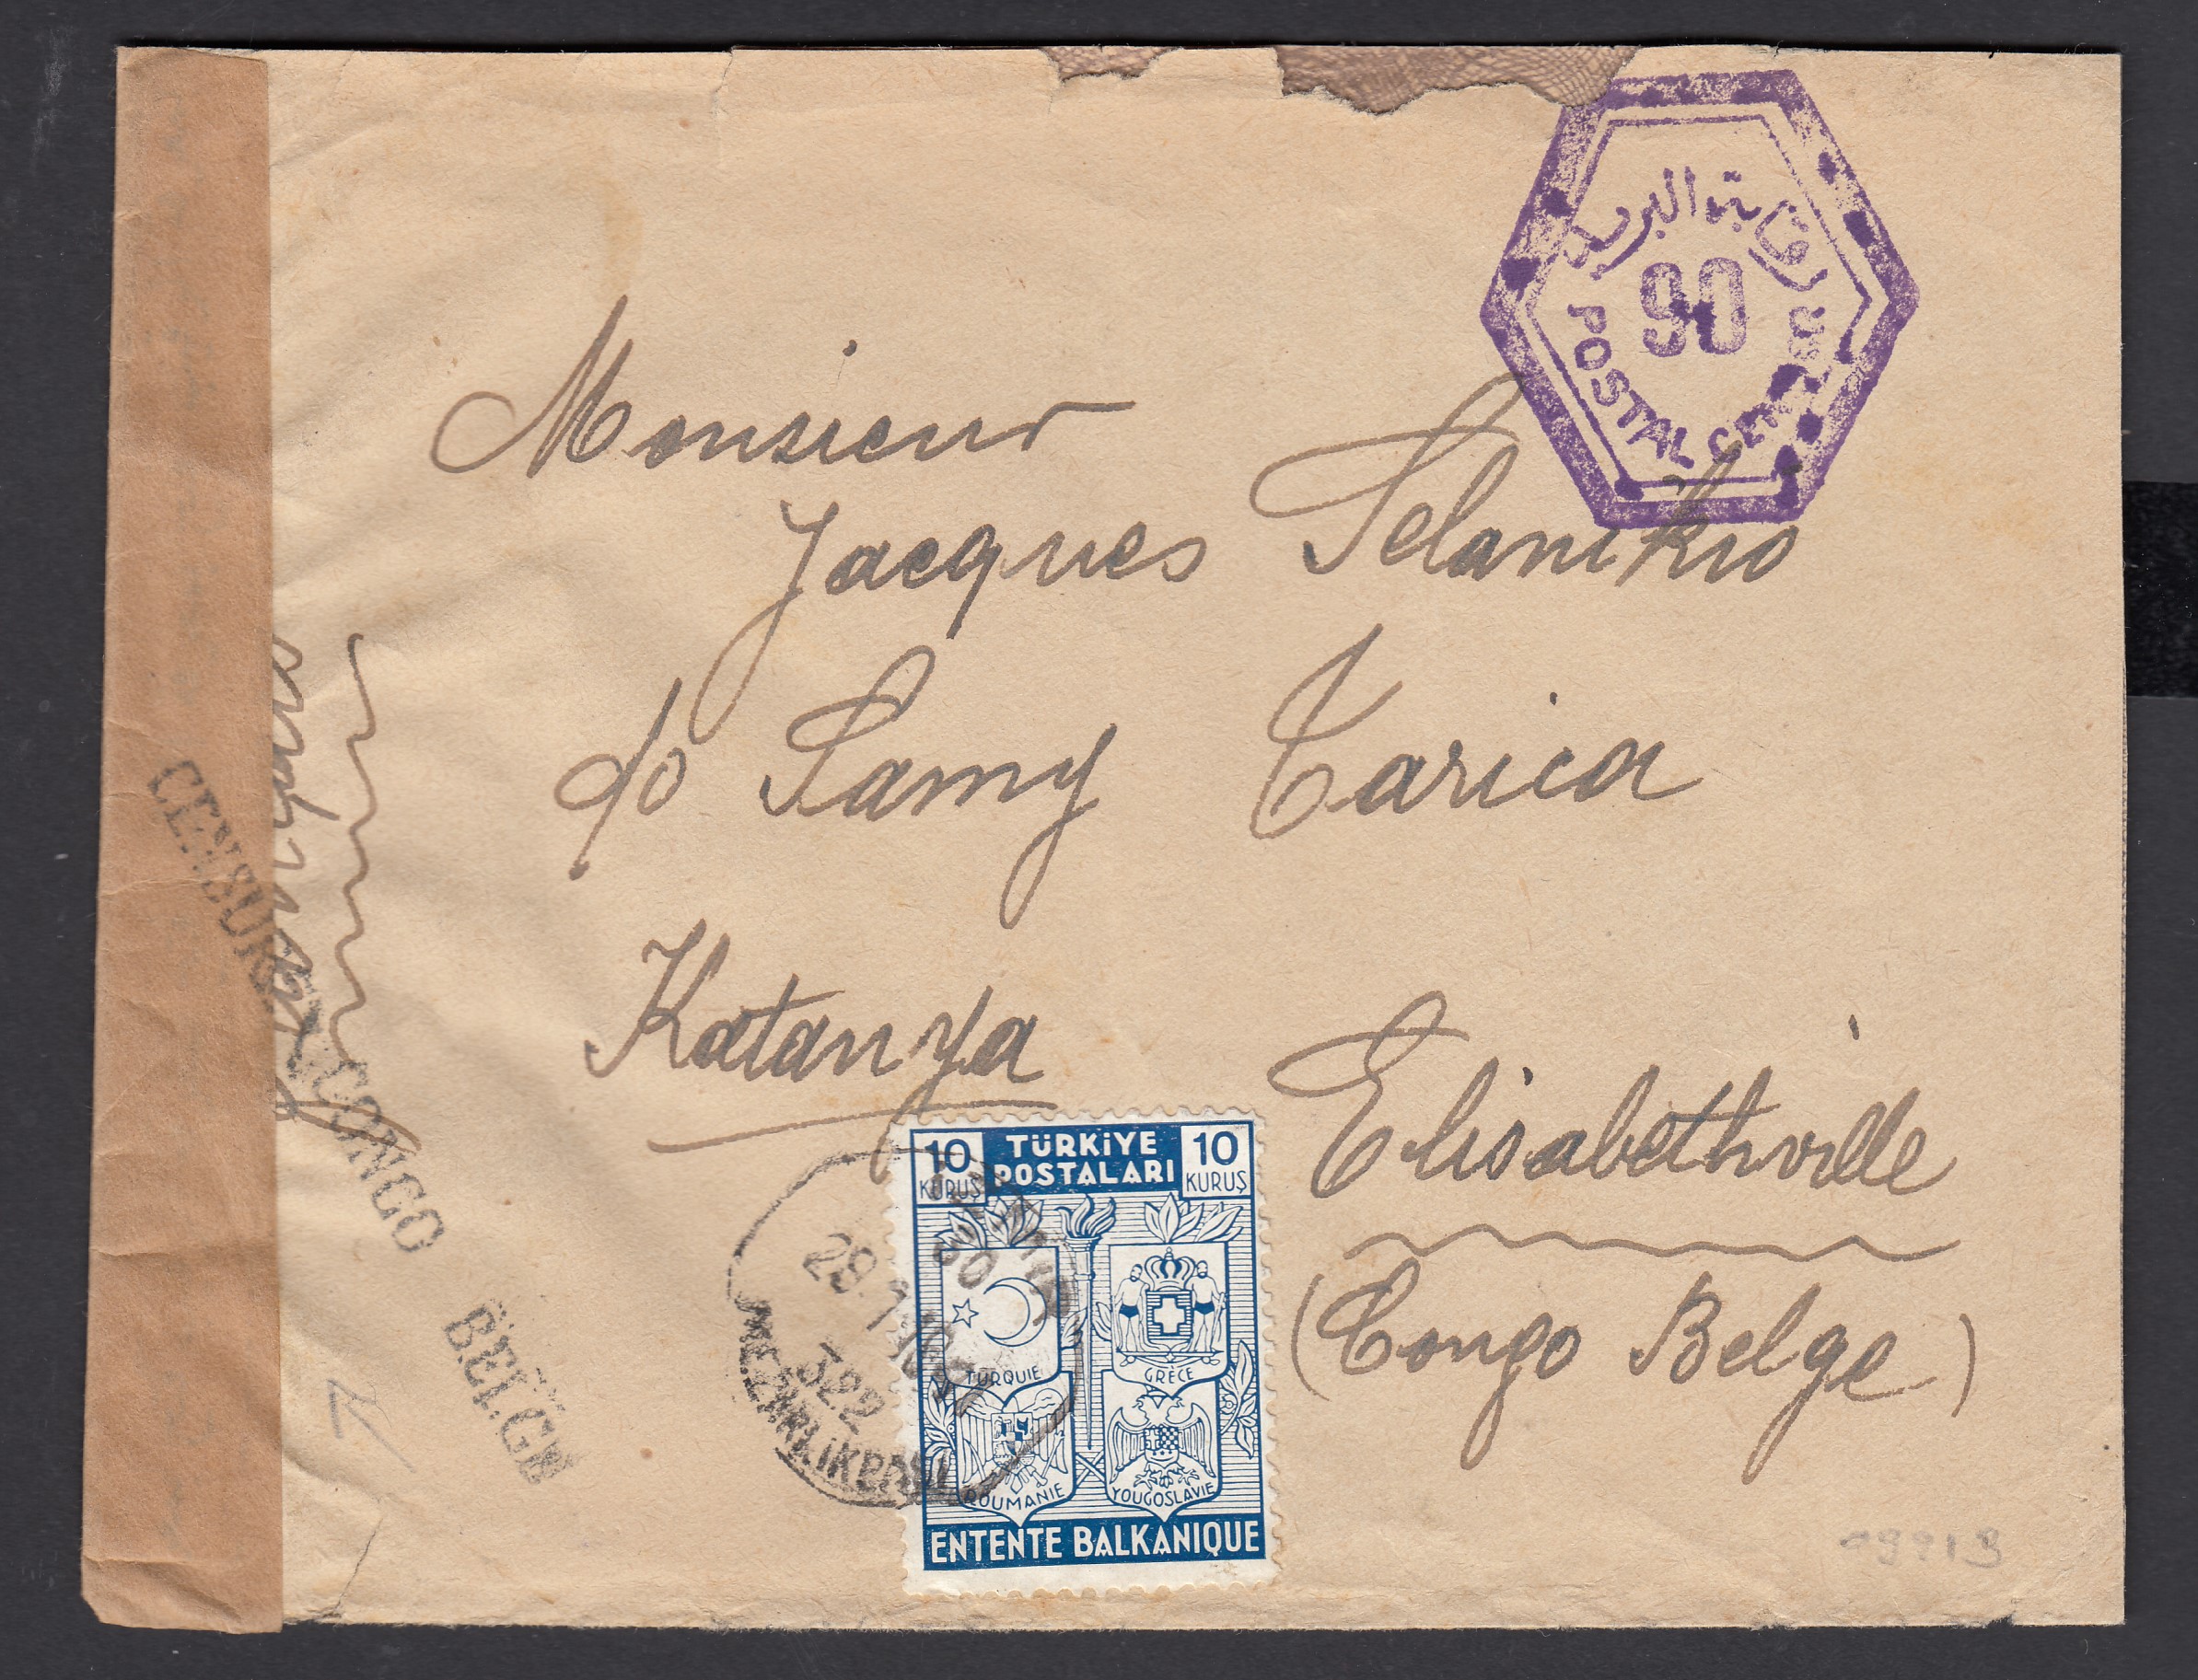 رقابة البريد
90
POSTAL CEN
Monsieur
Jacques Selanikio
c/o Samy Tarica
Katanga
Elisabethville
(Congo Belge)
CENSUR
CONGO
BELGE
10 TÜRKİYE 10
KURUŞ POSTALARI KURUŞ
TURQUIE GRÈCE
ROUMANIE YOUGOSLAVIE
ENTENTE BALKANIQUE
322